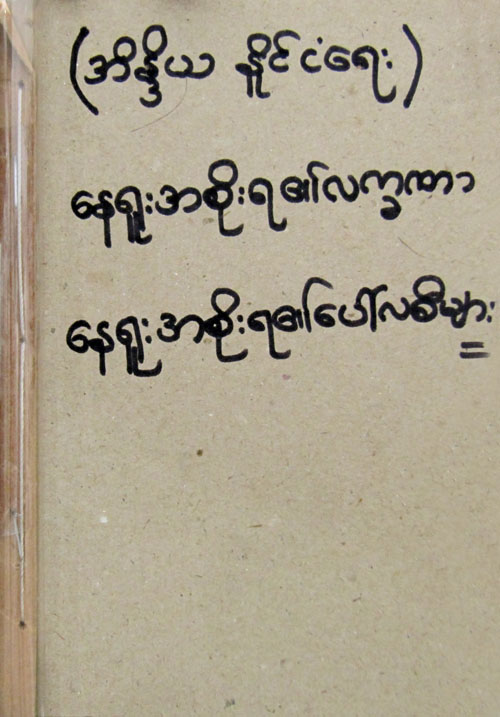 (အိန္ဒိယ နိူင်ငံရေး)
နေရူးအစိုးရ၏လက္ခဏာ
နေရူးအစိုးရ၏ပေါ်လစီများ